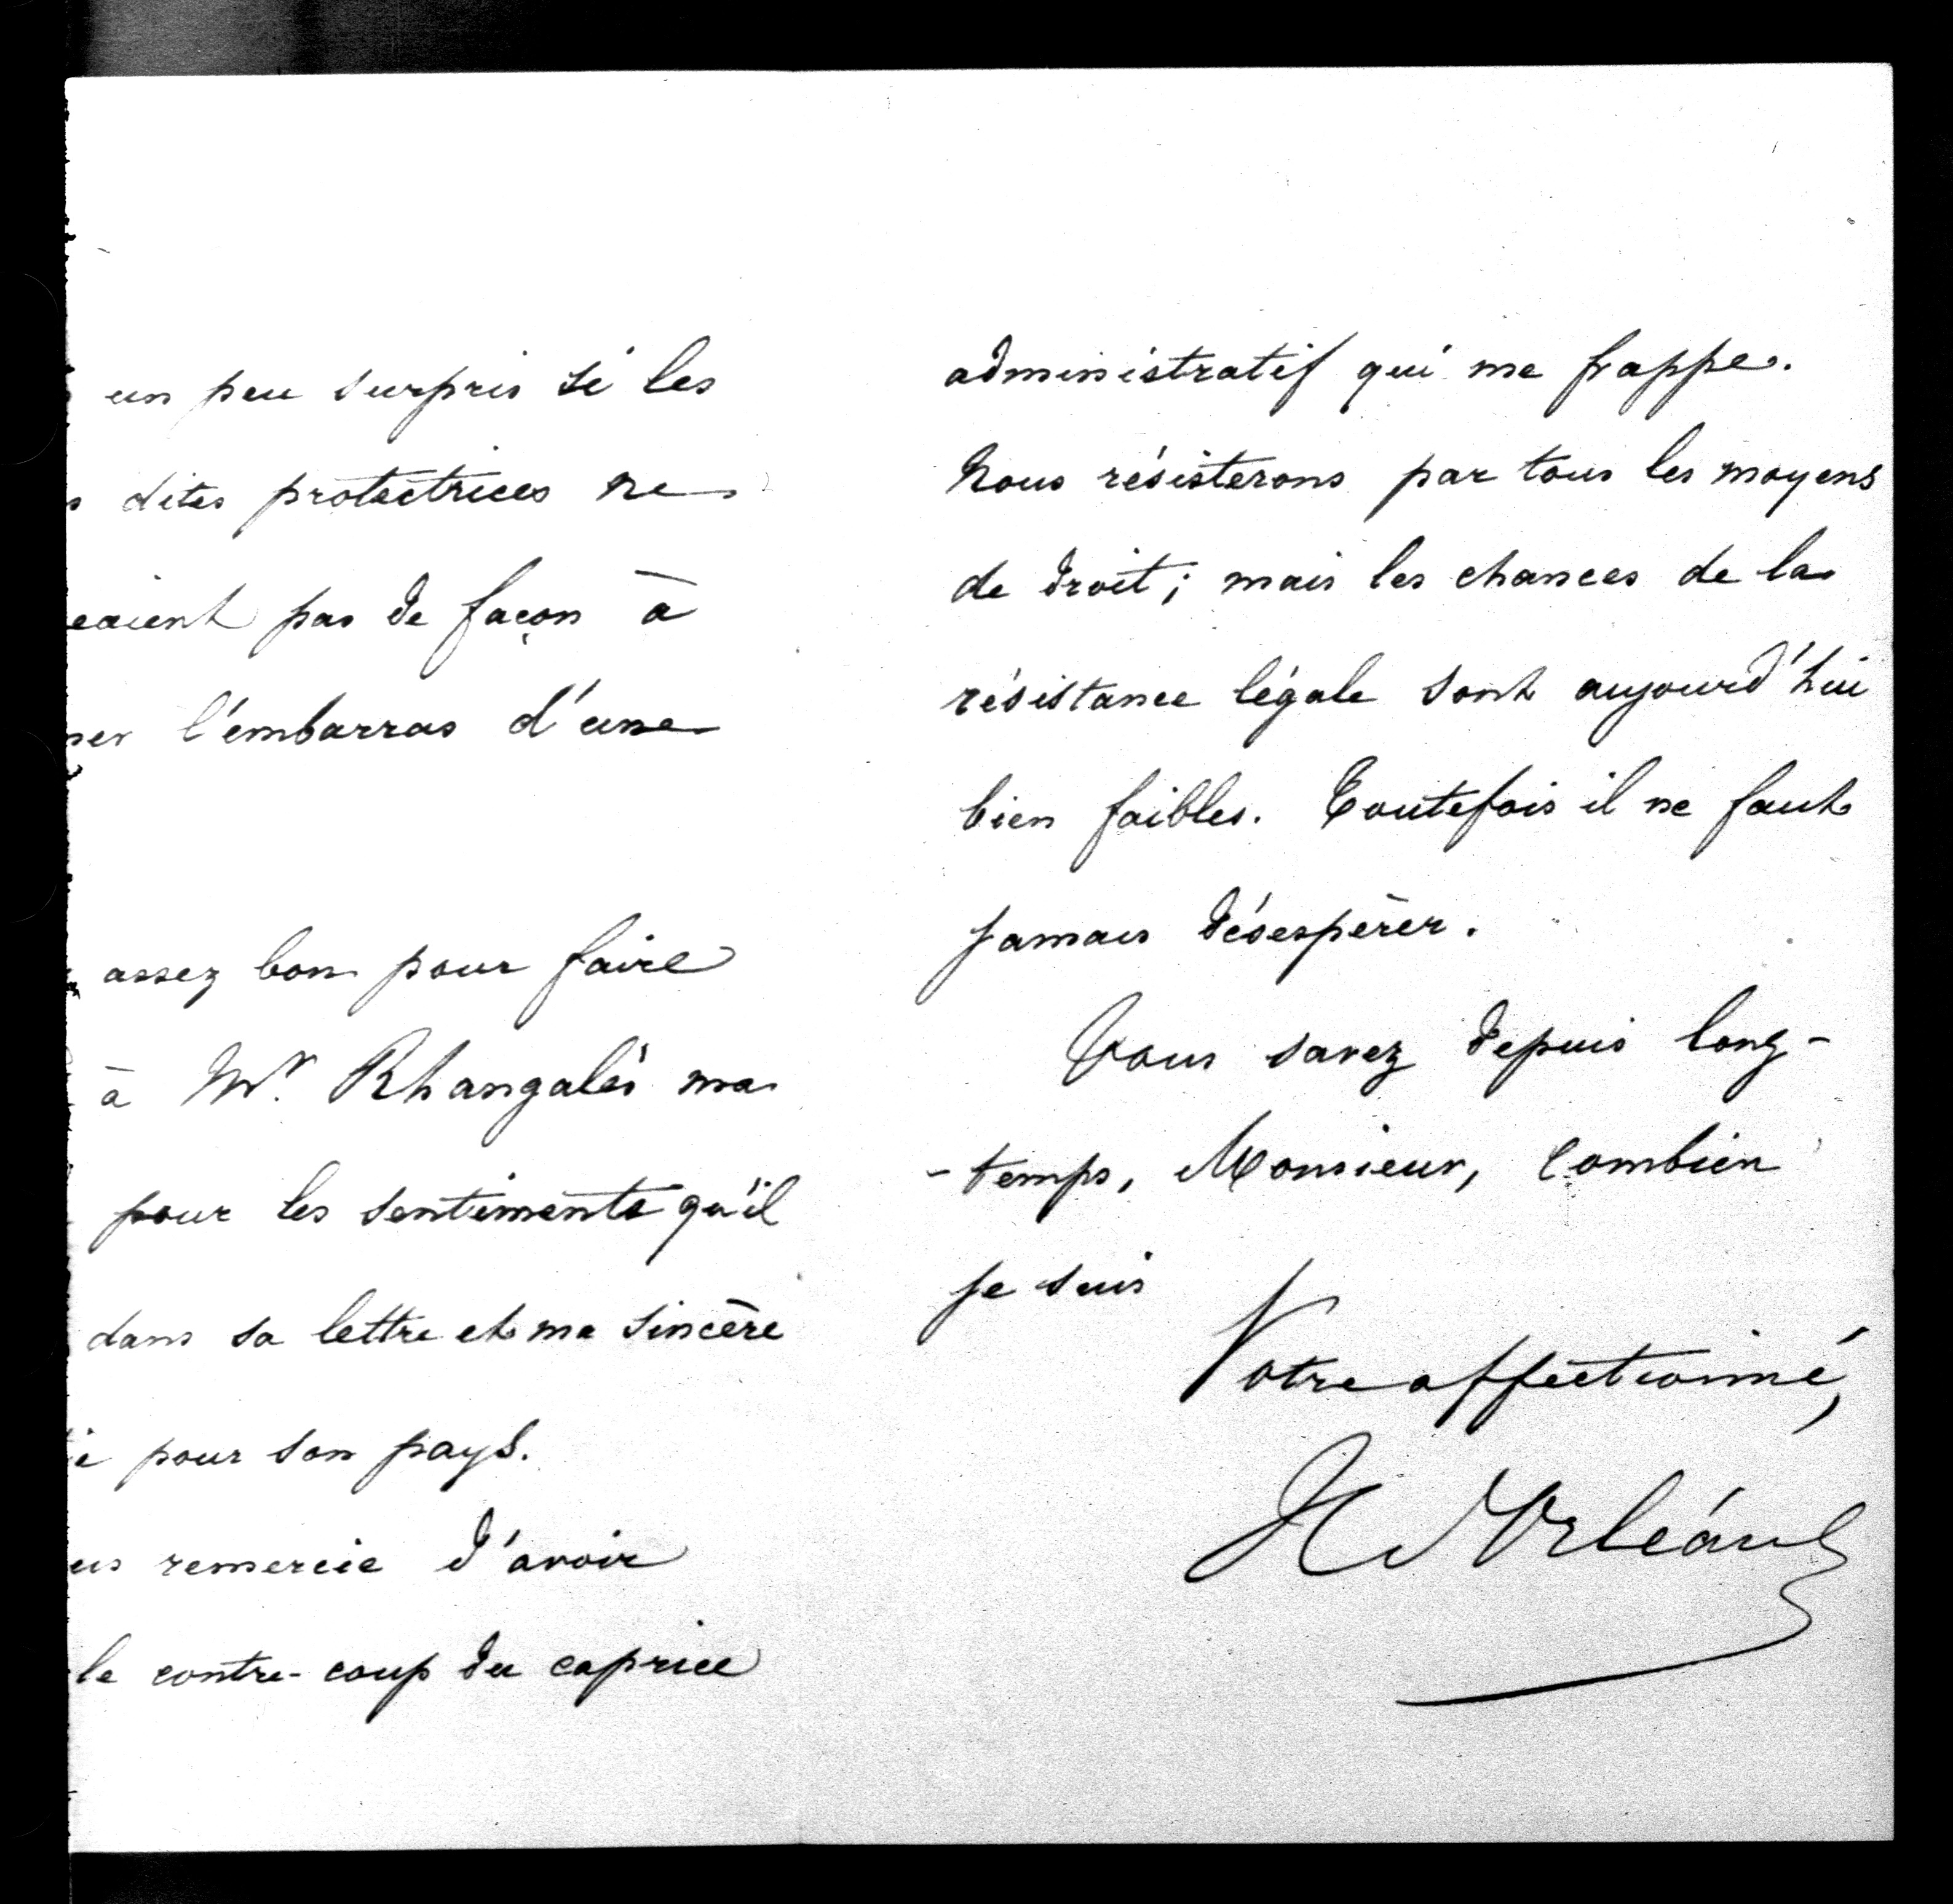 un peu surpris si les
dites protectrices ne
eaient pas de façon à
ner l'embarras d'une
assez bon pour faire
à Mr. Rhangabès ma
pour les sentiments qu'il
dans sa lettre et ma sincère
ie pour son pays.
us remercie d'avoir
le contre-coup du caprice
administratif qui me frappe.
Nous résisterons par tous les moyens
de droit; mais les chances de la
résistance légale sont aujourd'hui
bien faibles. Toutefois il ne faut
jamais désespérer.
Vous savez depuis long-
-temps, Monsieur, combien
je suis
Votre affectionné,
H d'Orléans